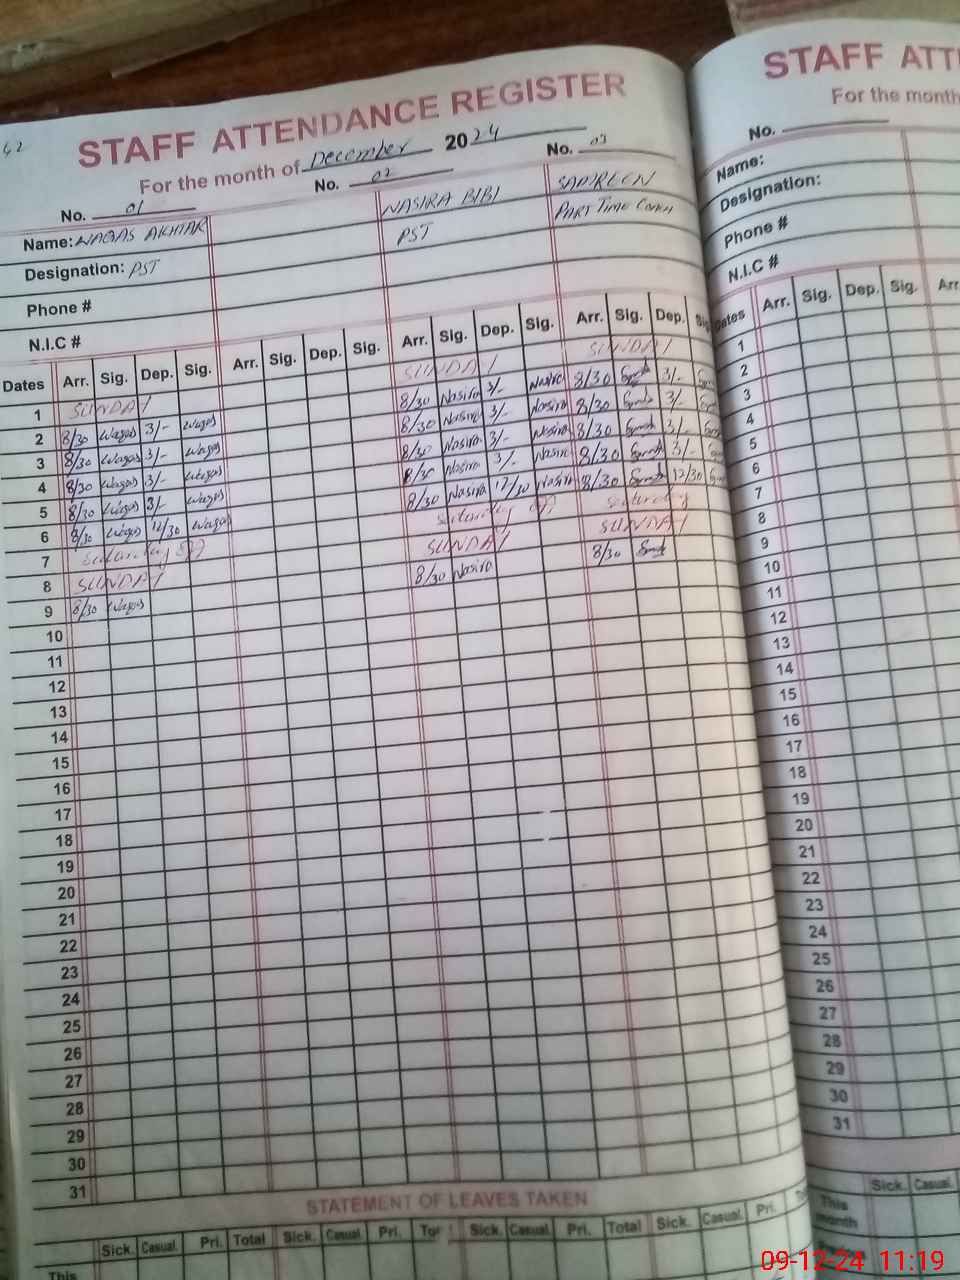 42
STAFF ATTENDANCE REGISTER
For the month of December 2024
No. 01 No. 02 No. 03
Name: WAQAS AKHTAR NASIRA BIBI
Designation: PST PST PART TIME
Phone #
N.I.C #
Dates Arr. Sig. Dep. Sig. Arr. Sig. Dep. Sig. Arr. Sig. Dep. Sig. Arr. Sig. Dep. Sig
1 SUNDAY SUNDAY SUNDAY
2 8/30 Waqas 3/- Waqas 8/30 Nasira 3/- Nasira 8/30 3/-
3 8/30 Waqas 3/- Waqas 8/30 Nasira 3/- Nasira 8/30 3/-
4 8/30 Waqas 3/- Waqas 8/30 Nasira 3/- Nasira 8/30 3/-
5 8/30 Waqas 3/- Waqas 8/30 Nasira 3/- Nasira 8/30 3/-
6 8/30 Waqas 12/30 Waqas 8/30 Nasira 12/30 Nasira 8/30 12/30
7 Saturday off Saturday off Saturday
8 SUNDAY SUNDAY SUNDAY
9 8/30 Waqas 8/30 Nasira 8/30
10
11
12
13
14
15
16
17
18
19
20
21
22
23
24
25
26
27
28
29
30
31
STATEMENT OF LEAVES TAKEN
Sick. Casual. Pri. Total Sick. Casual. Pri. Tot Sick. Casual. Pri. Total Sick. Casual. Pri.
This
STAFF ATTE
For the month
No.
Name:
Designation:
Phone #
N.I.C #
Dates Arr. Sig. Dep. Sig. Arr
1
2
3
4
5
6
7
8
9
10
11
12
13
14
15
16
17
18
19
20
21
22
23
24
25
26
27
28
29
30
31
Sick. Casual.
This
month
09-12-24 11:19